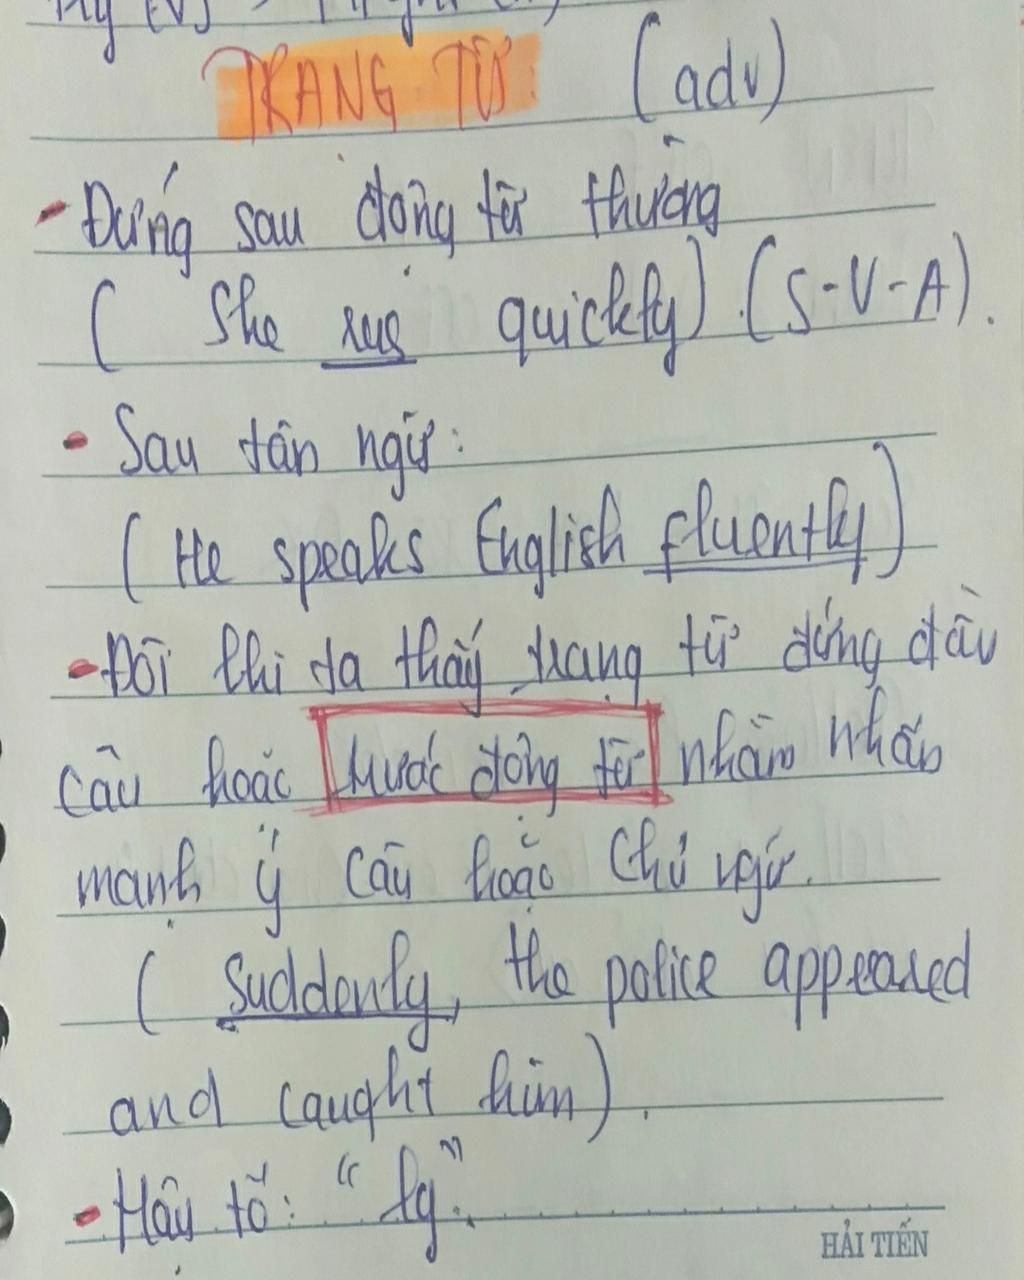 TRẠNG TỪ: (adv)
- Đứng sau động từ thường
( She runs quickly) (S-V-A).
- Sau tân ngữ:
( He speaks English fluently)
- Đôi khi ta thấy trạng từ đứng đầu
câu hoặc trước động từ nhằm nhấn
mạnh ý câu hoặc chủ ngữ.
( Suddenly, the police appeared
and caught him).
- Hậu tố: "ly".
HẢI TIẾN